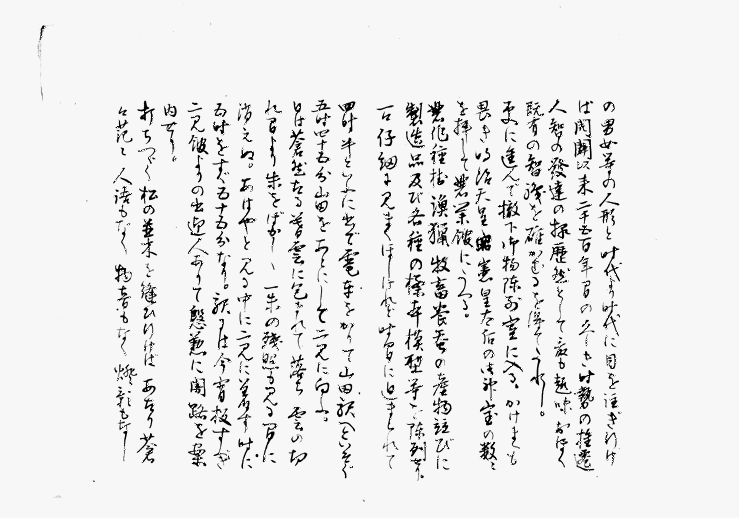 の男女等の人形と時代時代に目を注ぎ行け
ば開闢以来二千五百年間の久しき時勢の推遷
人智の発達の様歴然として最も趣味おほく
既有の智識を確かむるを得てうれし。
更に進んで撤下御物陳列室に入る、かけまくも
畏き明治天皇昭憲皇太后の御神宝の数々
を拝して農業館にうつる。
農作種樹漁猟牧畜養蚕の産物並びに
製造品及び各種の標本模型等を陳列せり。
一々仔細に見まくほしけれど時間に迫まられて
四時半といふに出で電車をかりて山田駅へといそぐ
五時四十五分山田をあとにして二見に向ふ。
日は蒼然たる暮雲に包まれて落ち 雲の切
れ間より朱をばかし 一朱の残照も見る間に
消えぬ。あはやと見る中に二見に着す時に
五時をすぎ五十五分なり。駅には今宵投すべき
二見館よりの出迎人ありて慇懃に開路を案
内せり。
打ちつゞく松の並木を縫ひ行けば あたり蒼
々茫々 人語もなく物音もなく 燈影もなし